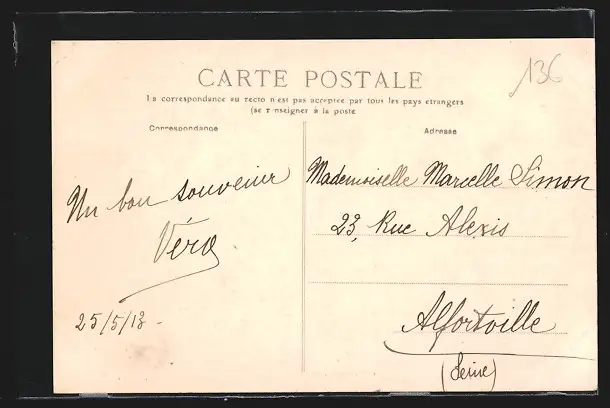 136
CARTE POSTALE
La correspondance au recto n'est pas acceptée par tous les pays étrangers
(se renseigner à la poste
Correspondance
Adresse
Un bon souvenir
Véra
25/5/13 -
Mademoiselle Marcelle Simon
23, Rue Alexis
Alfortville
(Seine)